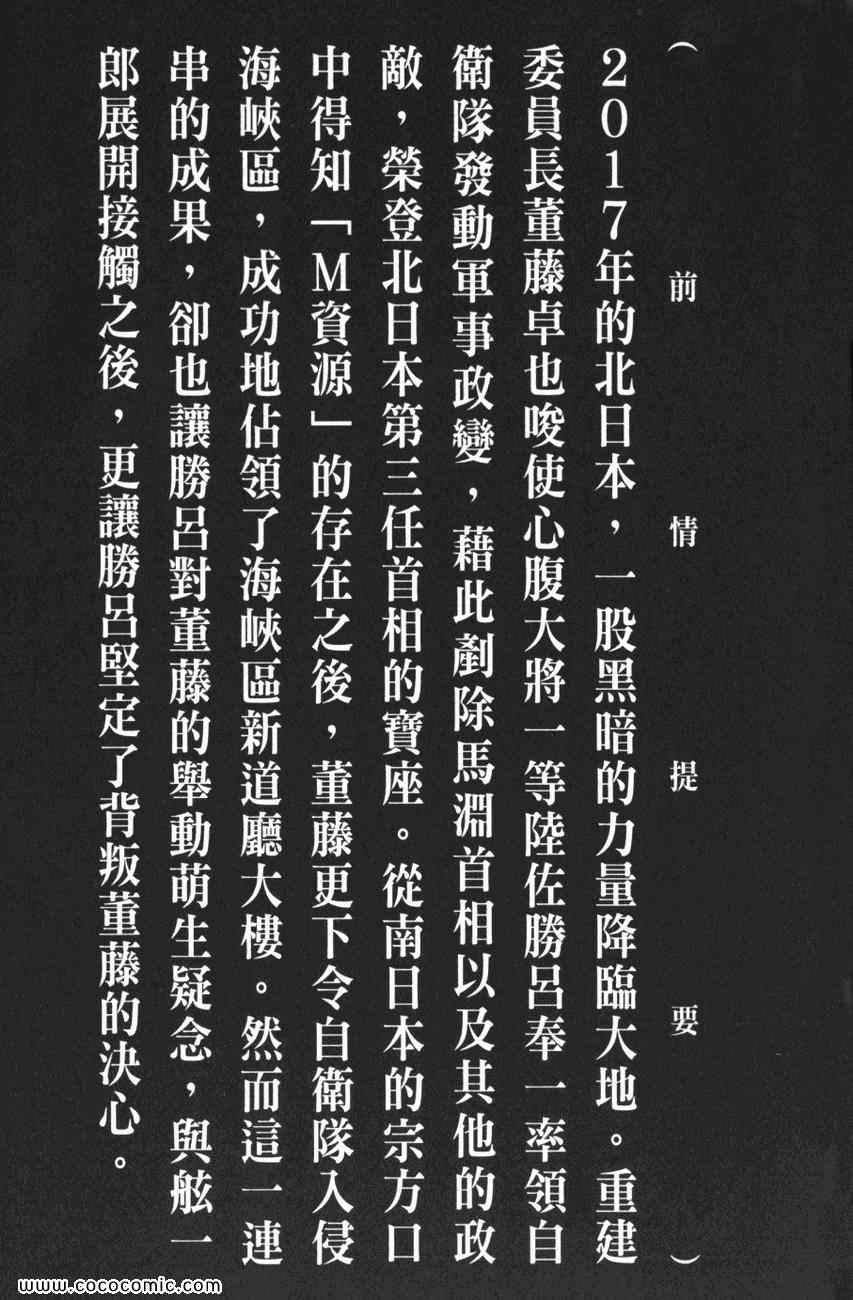 （前情提要）
2017年的北日本，一股黑暗的力量降臨大地。重建
委員長董藤卓也唆使心腹大將一等陸佐勝呂奉一率領自
衛隊發動軍事政變，藉此剷除馬淵首相以及其他的政
敵，榮登北日本第三任首相的寶座。從南日本的宗方口
中得知「M資源」的存在之後，董藤更下令自衛隊入侵
海峽區，成功地佔領了海峽區新道廳大樓。然而這一連
串的成果，卻也讓勝呂對董藤的舉動萌生疑念，與舷一
郎展開接觸之後，更讓勝呂堅定了背叛董藤的決心。
www.cococomic.com